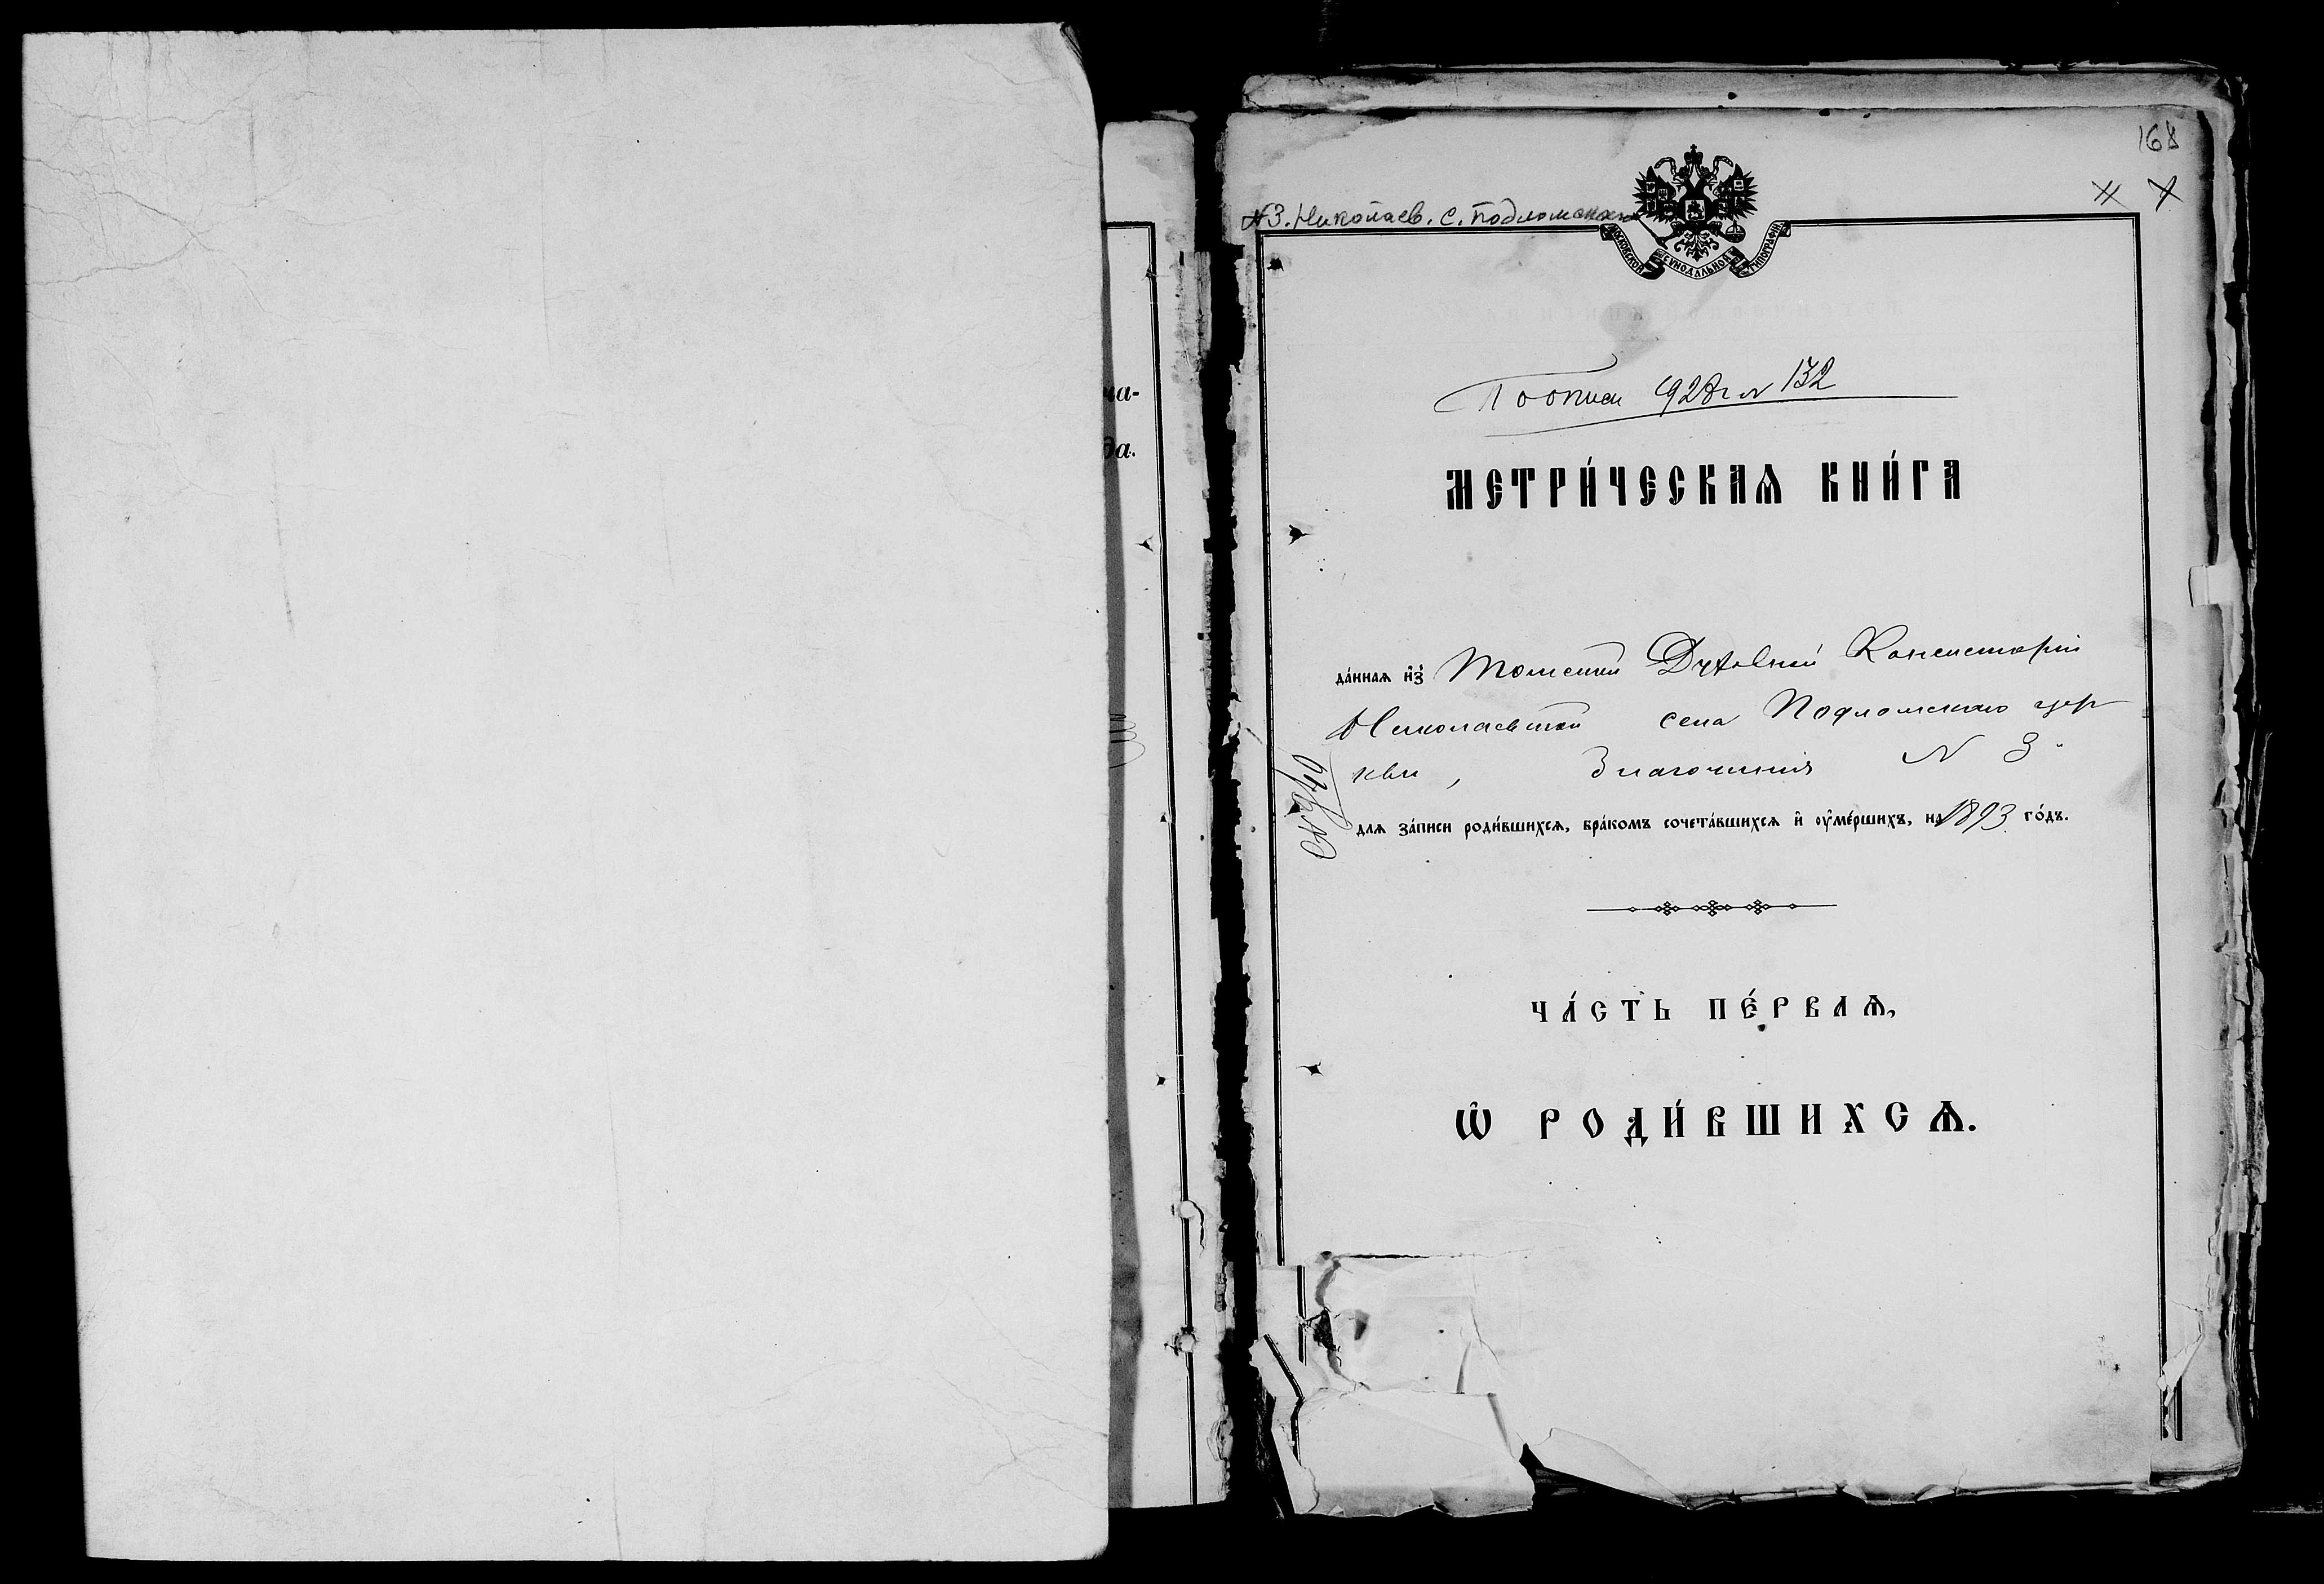 ча-
да.
168
№3. Николаев. с. Подломск
МОСКОВСКОЙ СУНОДАЛЬНОЙ ТИПОГРАФІИ
По описи 1928 г № 132
МЕТРИ́ЧЕСКАѦ КНИ́ГА
да́ннаѧ и҆з̾ Томской Духовной Консисторіи
Николаевской села Подломскаго цер
кви, Благочинія № 3.
длѧ за́писи роди́вшихсѧ, бра́комъ сочета́вшихсѧ и҆ оу҆ме́ршихъ, на 1893 го́дъ.
ЧА́СТЬ ПЕ́РВАѦ,
Ѽ РОДИ́ВШИХСѦ.